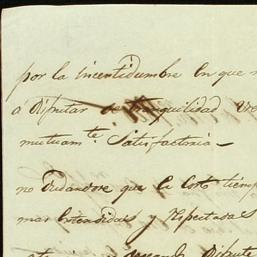 por la incertidumbre en que
á disfrutar de tranquilidad
mutuam.te satisfactoria
no dudandose que la Corte
mas estendidas y respetadas